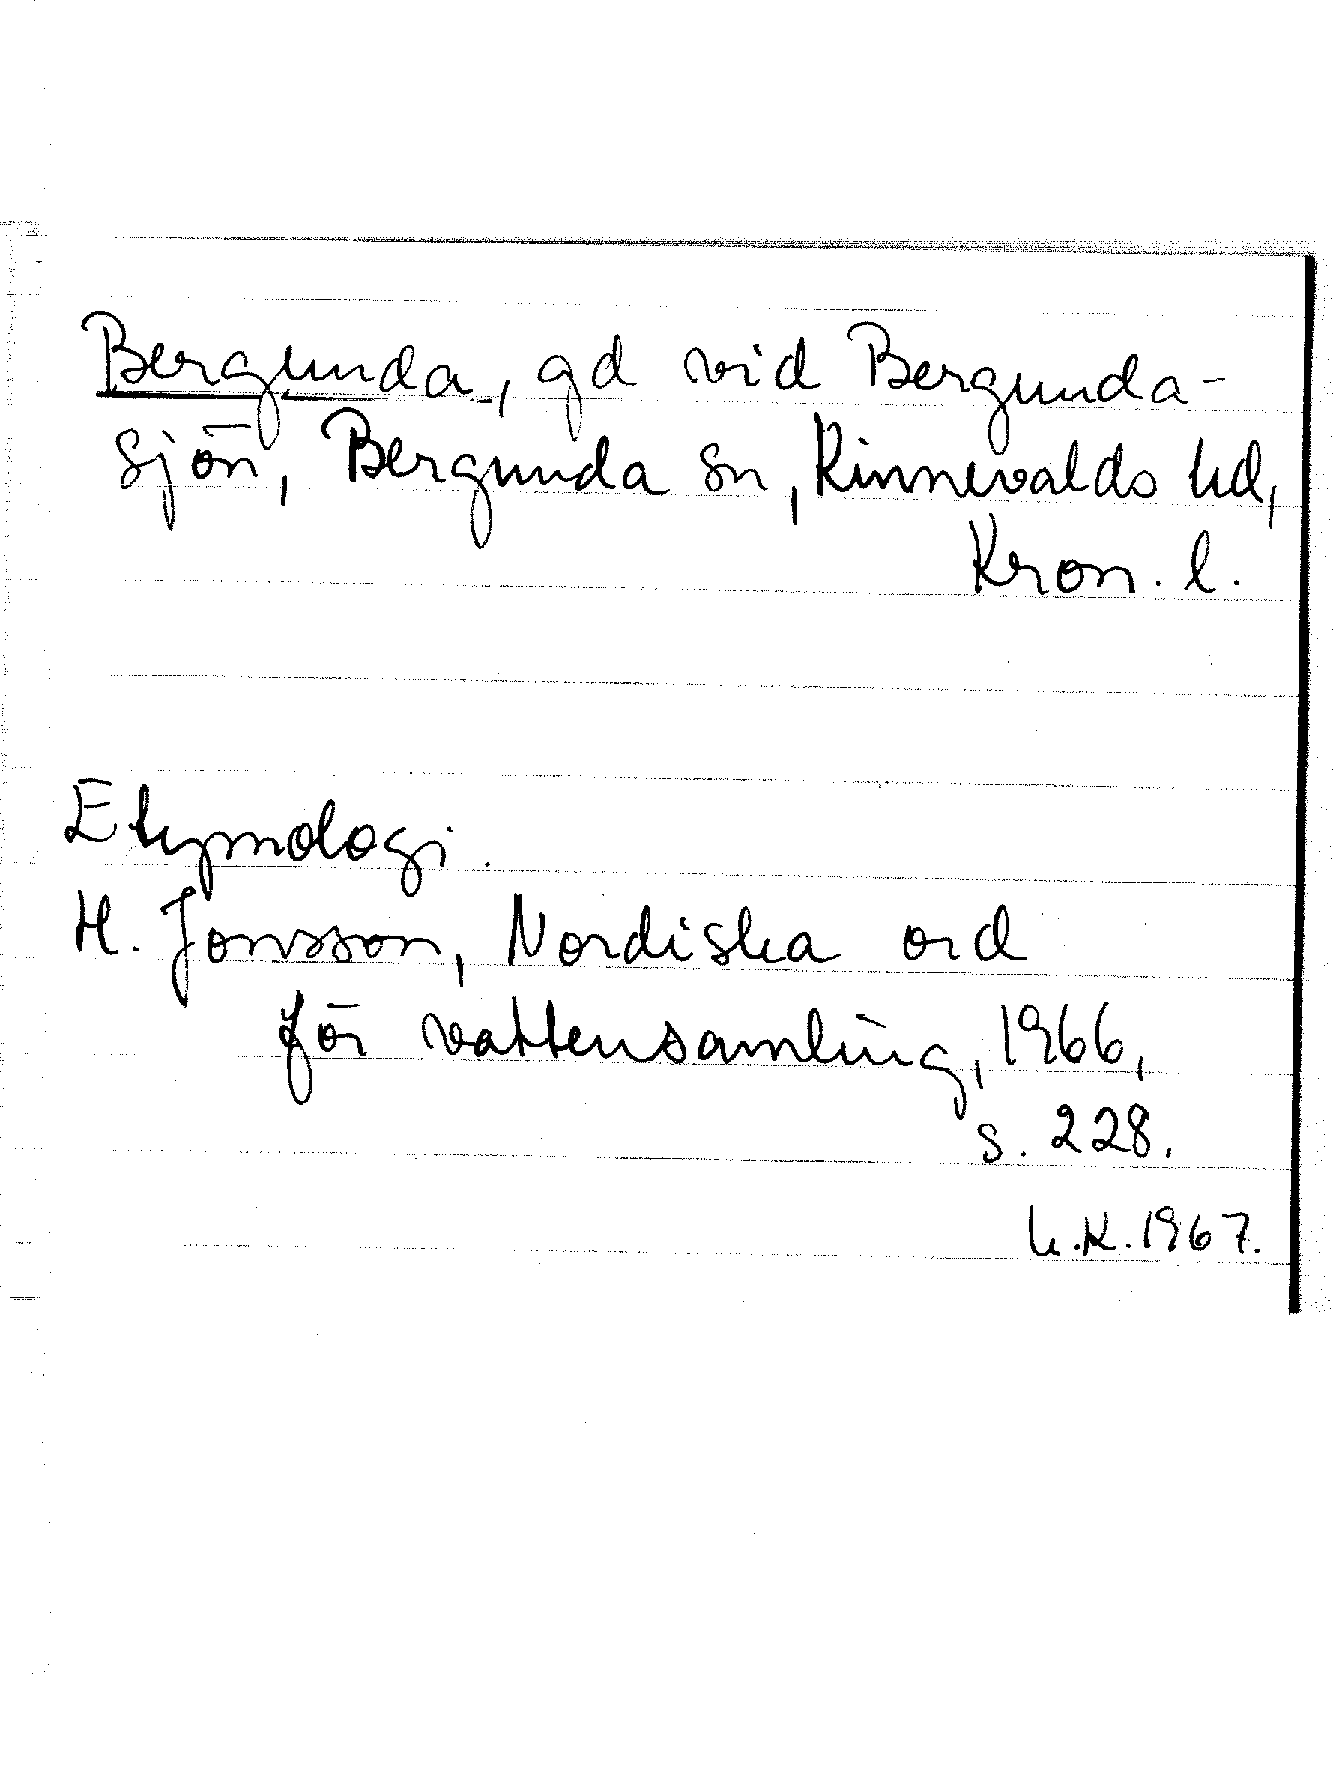 Bergunda, gd vid Bergunda-
sjön, Bergunda sn, Kinnevalds hd,
Kron. l.
Etymologi.
H. Jonsson, Nordiska ord
för vattensamling, 1966,
s. 228.
h.K. 1967.